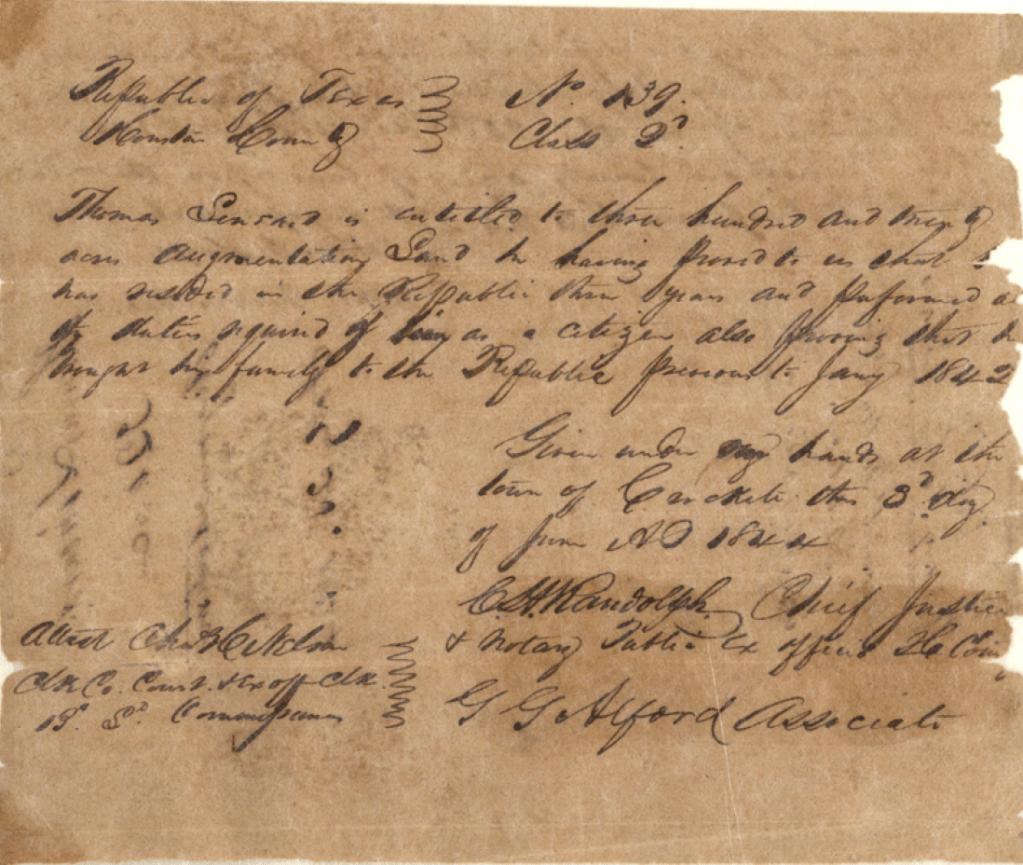 Republic of Texas No. 139.
Houston County Class 2d.
Thomas is entitled to three hundred and twenty
acres augmentation Land he having proved to us that
has resided in the Republic three years and performed a
the duties required of him as a citizen also proving that he
brought his family to the Republic previous to Jany 1842
Given under my hands at the
town of Crockett this 3d day
of June AD 1844
C. H. Randolph Chief Justice
& Notary Public Ex officio
Attest
Clk Co. Court & Ex off Clk.
Bd Ld Commissioners
G G Alford Associate